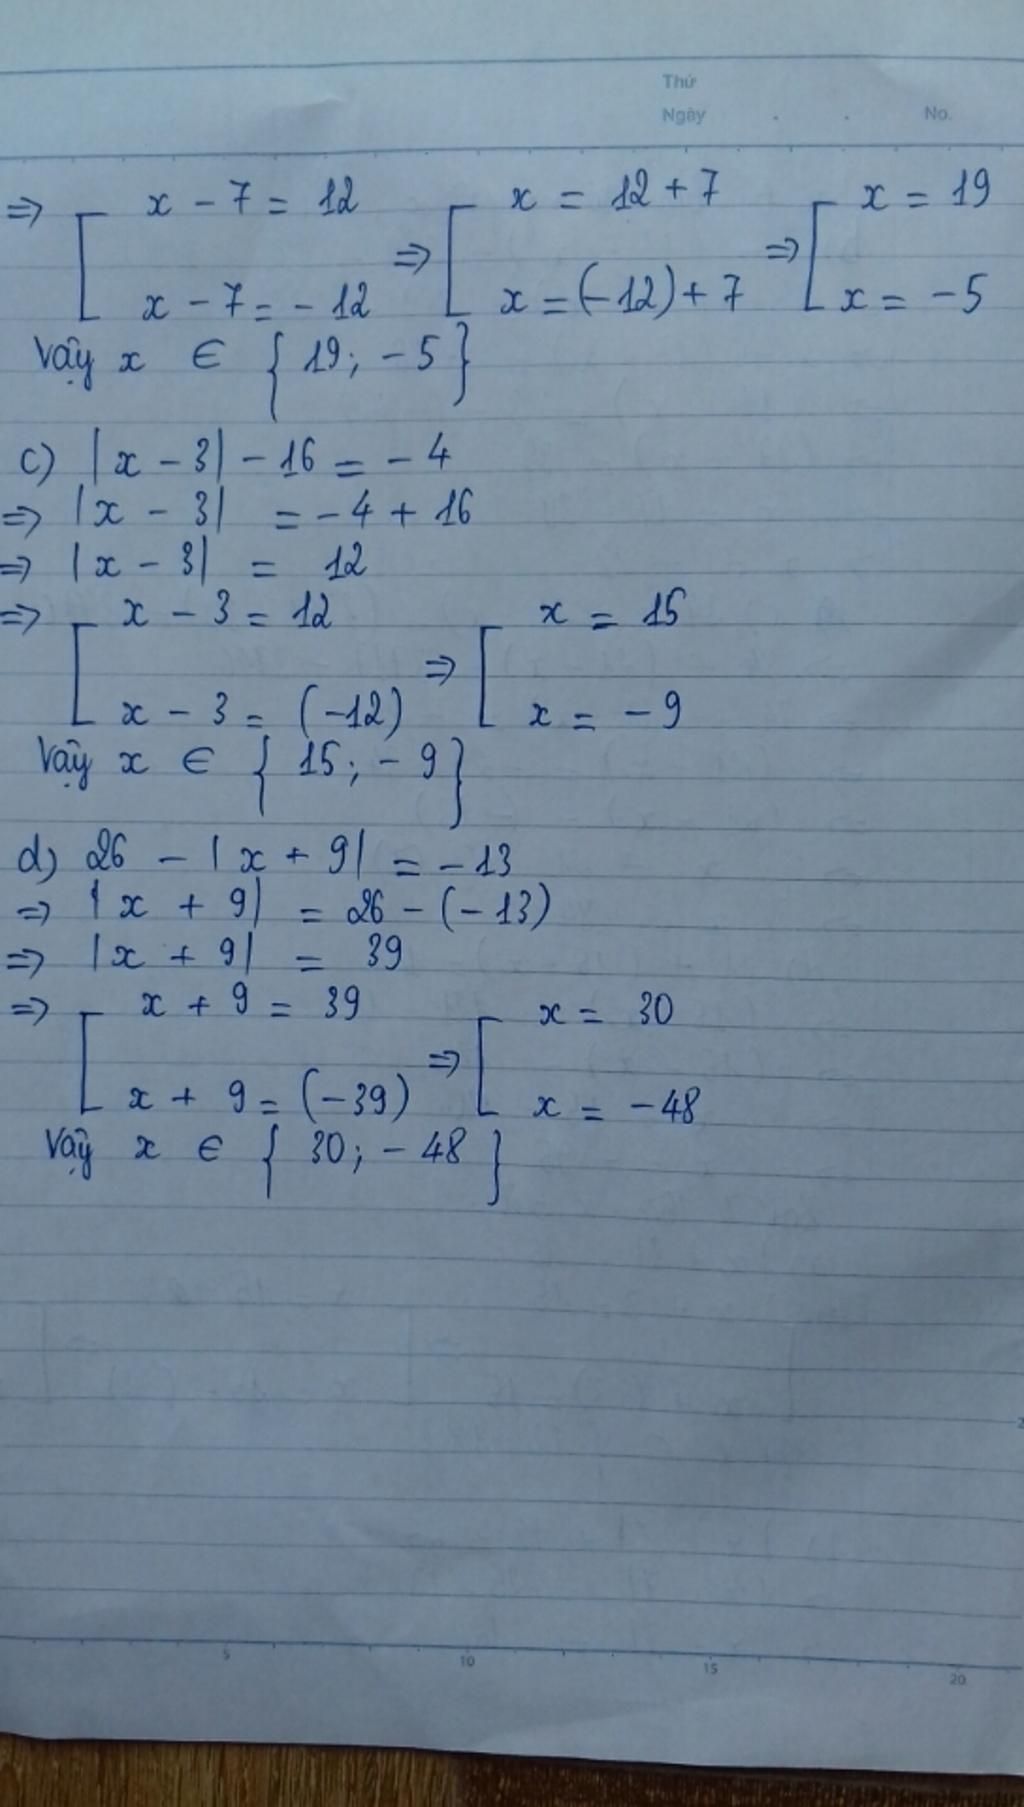 Thứ
Ngày . . No.
=> [ x - 7 = 12 => [ x = 12 + 7 => [ x = 19
x - 7 = - 12 x = (-12) + 7 x = -5
Vậy x ∈ { 19; - 5 }
c) |x - 3| - 16 = - 4
=> |x - 3| = - 4 + 16
=> |x - 3| = 12
=> [ x - 3 = 12 => [ x = 15
x - 3 = (-12) x = - 9
Vậy x ∈ { 15; - 9 }
d) 26 - |x + 9| = - 13
=> |x + 9| = 26 - (- 13)
=> |x + 9| = 39
=> [ x + 9 = 39 => [ x = 30
x + 9 = (-39) x = - 48
Vậy x ∈ { 30; - 48 }
5 10 15 20